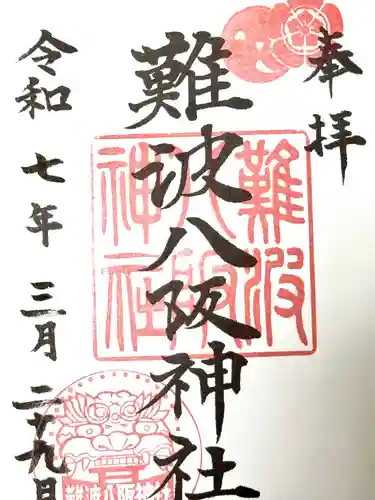 奉拝
難波八阪神社
難波
八阪
神社
令和七年三月二十九日
難波八阪神社